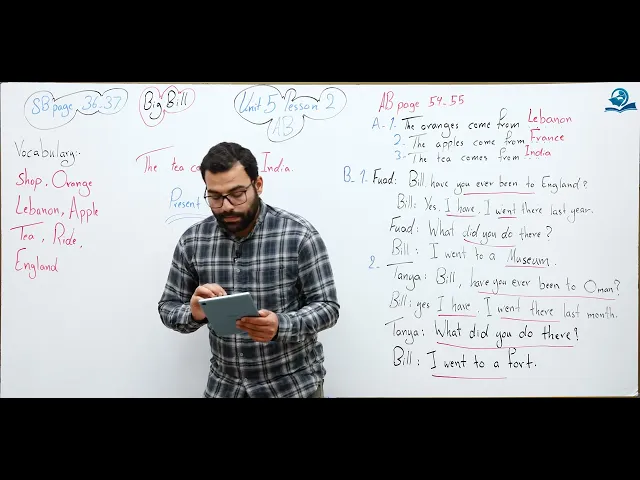 SB page 36-37
Big Bill
Unit 5 lesson 2
AB
Vocabulary:
Shop, Orange
Lebanon, Apple
Tea, Ride,
England
The tea co
India.
Present
AB page 54-55
A. 1. The oranges come from Lebanon
2. The apples come from France
3- The tea comes from India
B. 1. Fuad: Bill, have you ever been to England?
Bill: Yes, I have. I went there last year.
Fuad: What did you do there?
Bill: I went to a Museum.
2. Tanya: Bill, have you ever been to Oman?
Bill: yes I have. I went there last month.
Tanya: What did you do there?
Bill: I went to a fort.